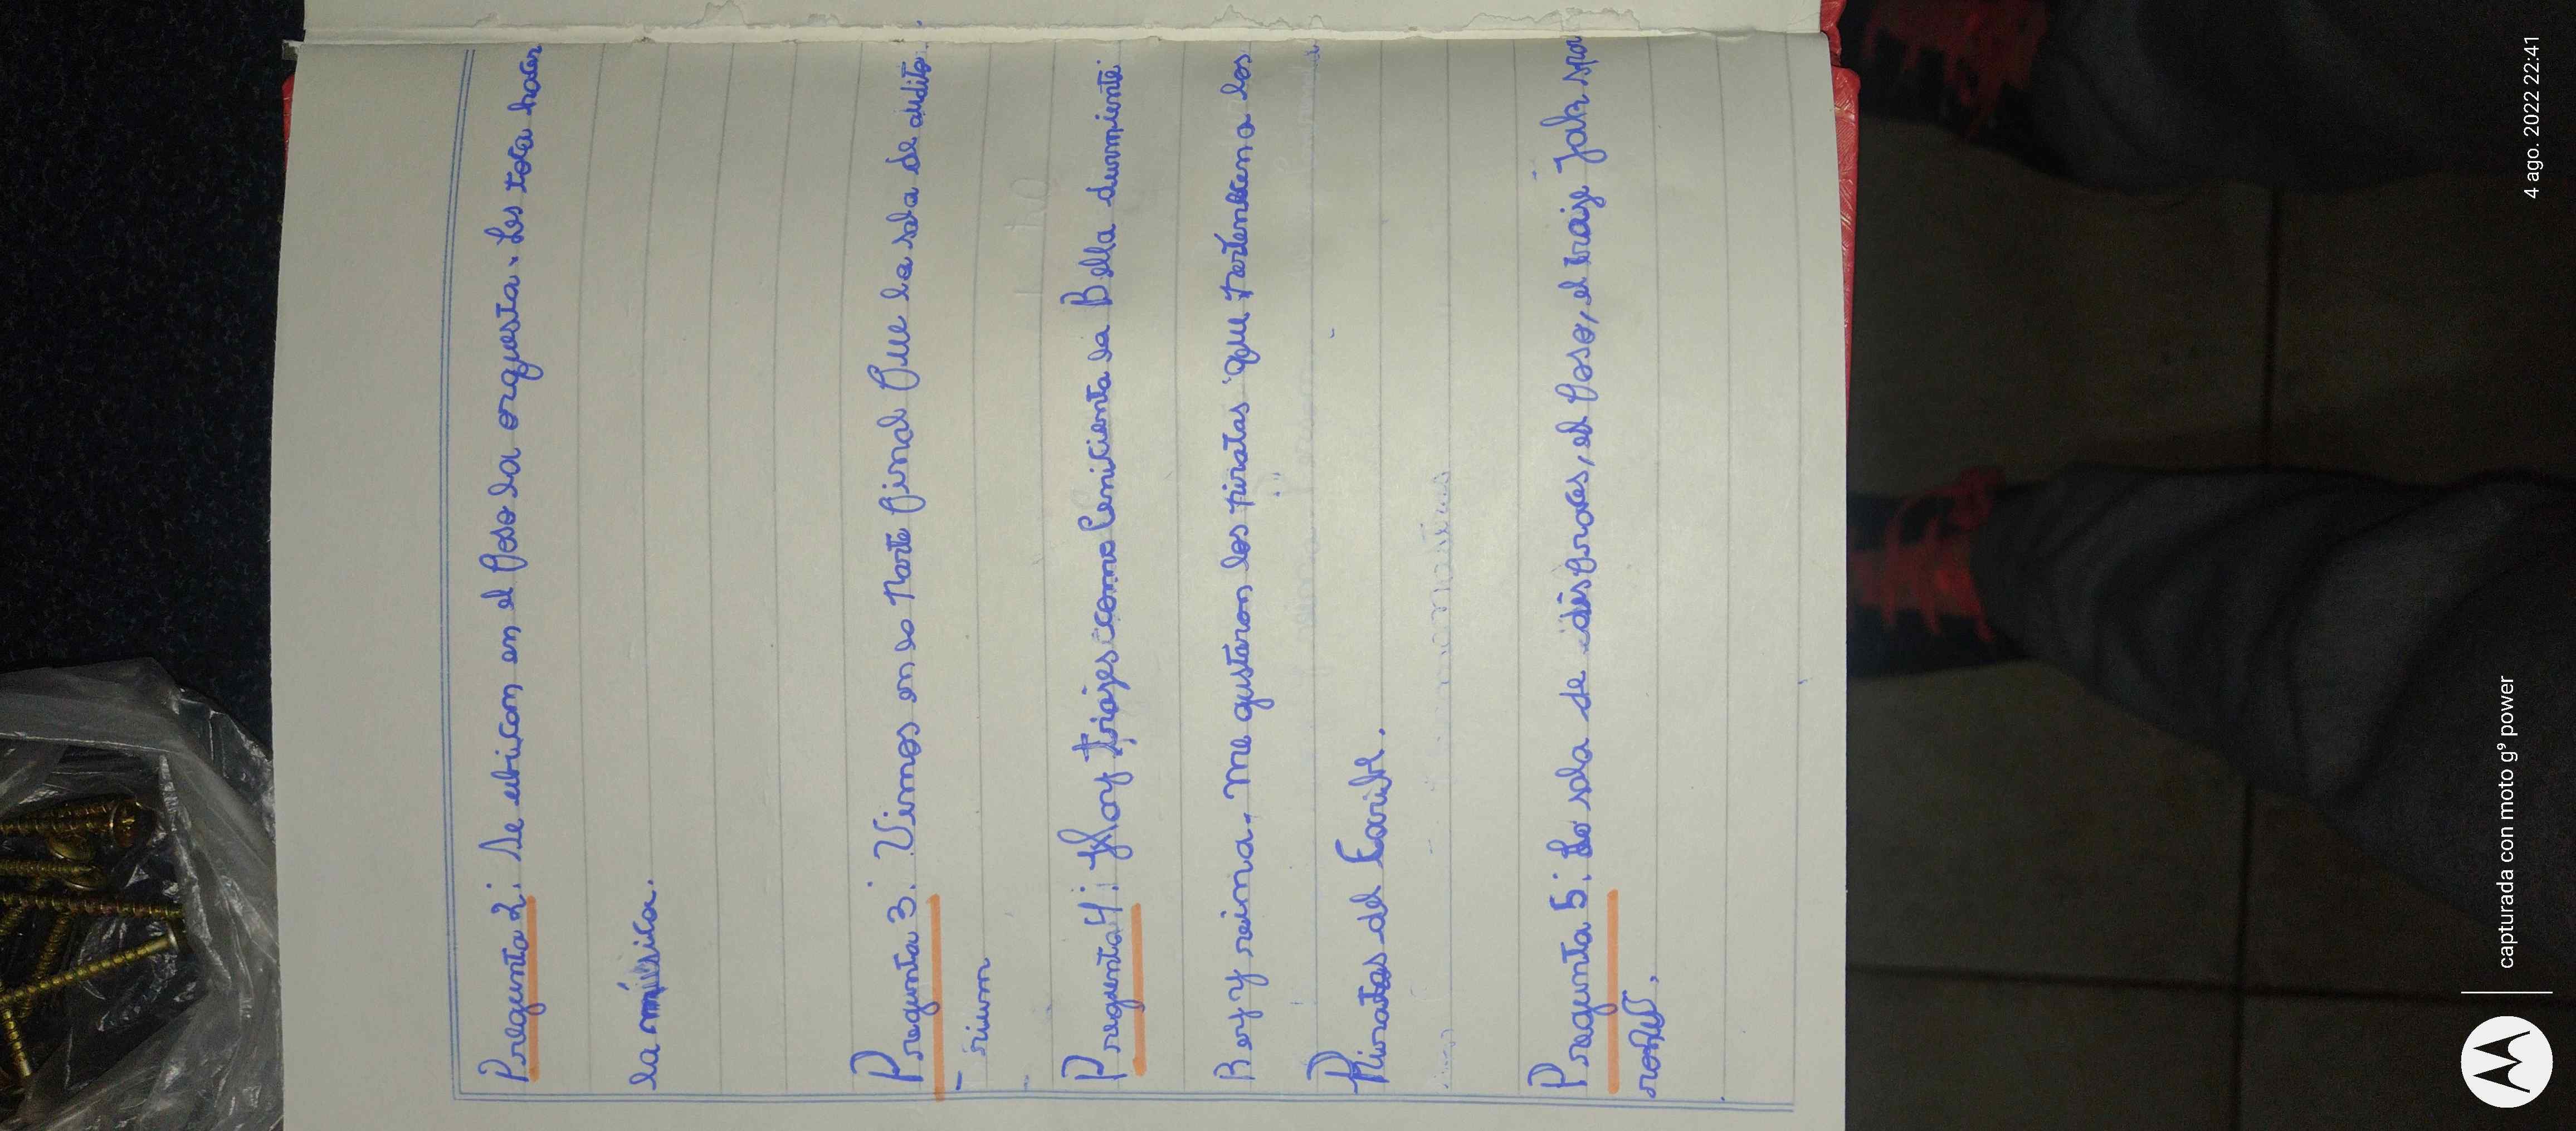 Pregunta 2: Se ubican en el foso la orquesta. Les toca hacer
la música.
Pregunta 3: Vimos en la parte final fue la sala de audito
- rium
Pregunta 4: Hay trajes como Cenicienta la Bella durmiente
Rey y reina. Me gustaron los piratas que pertenecen a los
Piratas del Caribe.
Pregunta 5: La sala de disfraces, el foso, el traje Jack spa
rrow.
capturada con moto g⁹ power
4 ago. 2022 22:41